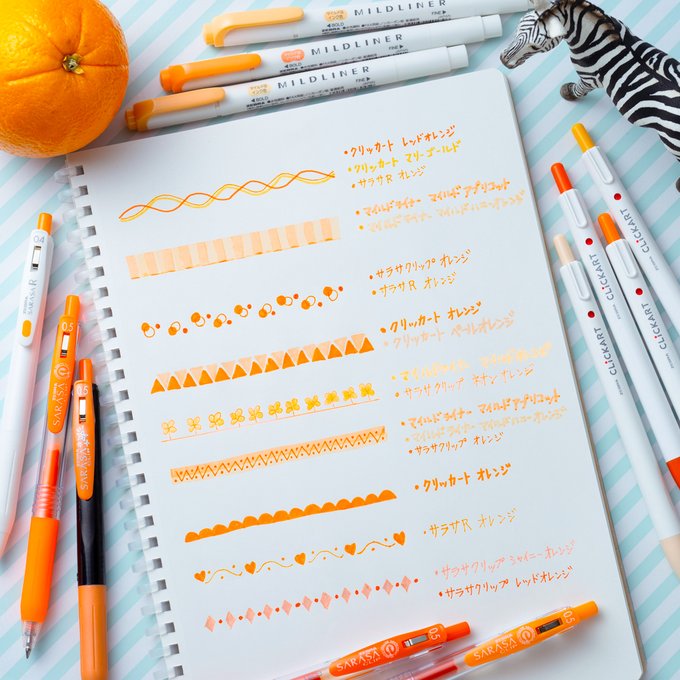 マイルドライナー MILDLINER
BOLD MILDLINER FINE
BOLD MILDLINER FINE
・クリッカート レッドオレンジ
・クリッカート マリーゴールド
・サラサR オレンジ
・マイルドライナー マイルドアプリコット
・マイルドライナー マイルドハニーオレンジ
・サラサクリップ オレンジ
・サラサR オレンジ
・クリッカート オレンジ
・クリッカート ペールオレンジ
・サラサクリップ ネオンオレンジ
・マイルドライナー マイルドアプリコット
・マイルドライナー マイルドハニーオレンジ
・サラサクリップ オレンジ
・クリッカート オレンジ
・サラサR オレンジ
・サラサクリップ シャイニーオレンジ
・サラサクリップ レッドオレンジ
0.4 SARASA R
0.5 SARASA
0.5 SARASA
ZEBRA CLiCKART
ZEBRA CLiCKART
ZEBRA CLiCKART
ZEBRA CLiCKART
SARASA CLIP 0.5
SARASA CLIP 0.5